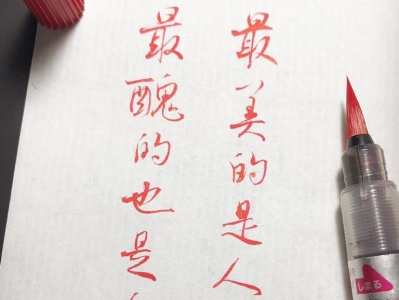 最美的是人
最醜的也是
しまる